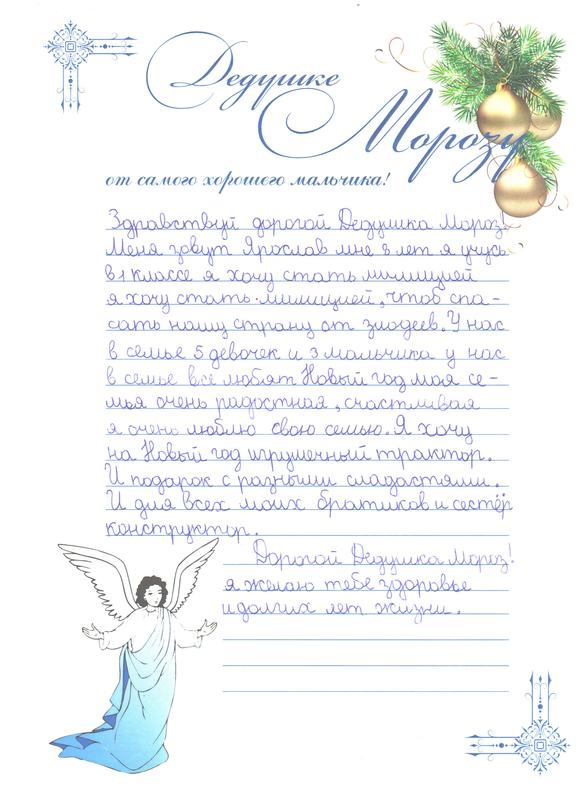 Дедушке
Морозу
от самого хорошего мальчика!
Здравствуй дорогой Дедушка Мороз!
Меня зовут Ярослав мне 8 лет я учусь
в 1 классе я хочу стать мицицией
я хочу стать милицией, чтоб спа-
сать нашу страну от злодеев. У нас
в семье 5 девочек и 3 мальчика у нас
в семье все любят Новый год моя се-
мья очень радостная, счастливая
я очень люблю свою семью. Я хочу
на Новый год игрушечный трактор.
И подарок с разными сладостями.
И для всех моих братиков и сестёр
конструктор.
Дорогой Дедушка Мороз!
я желаю тебе здоровье
и долгих лет жизни.